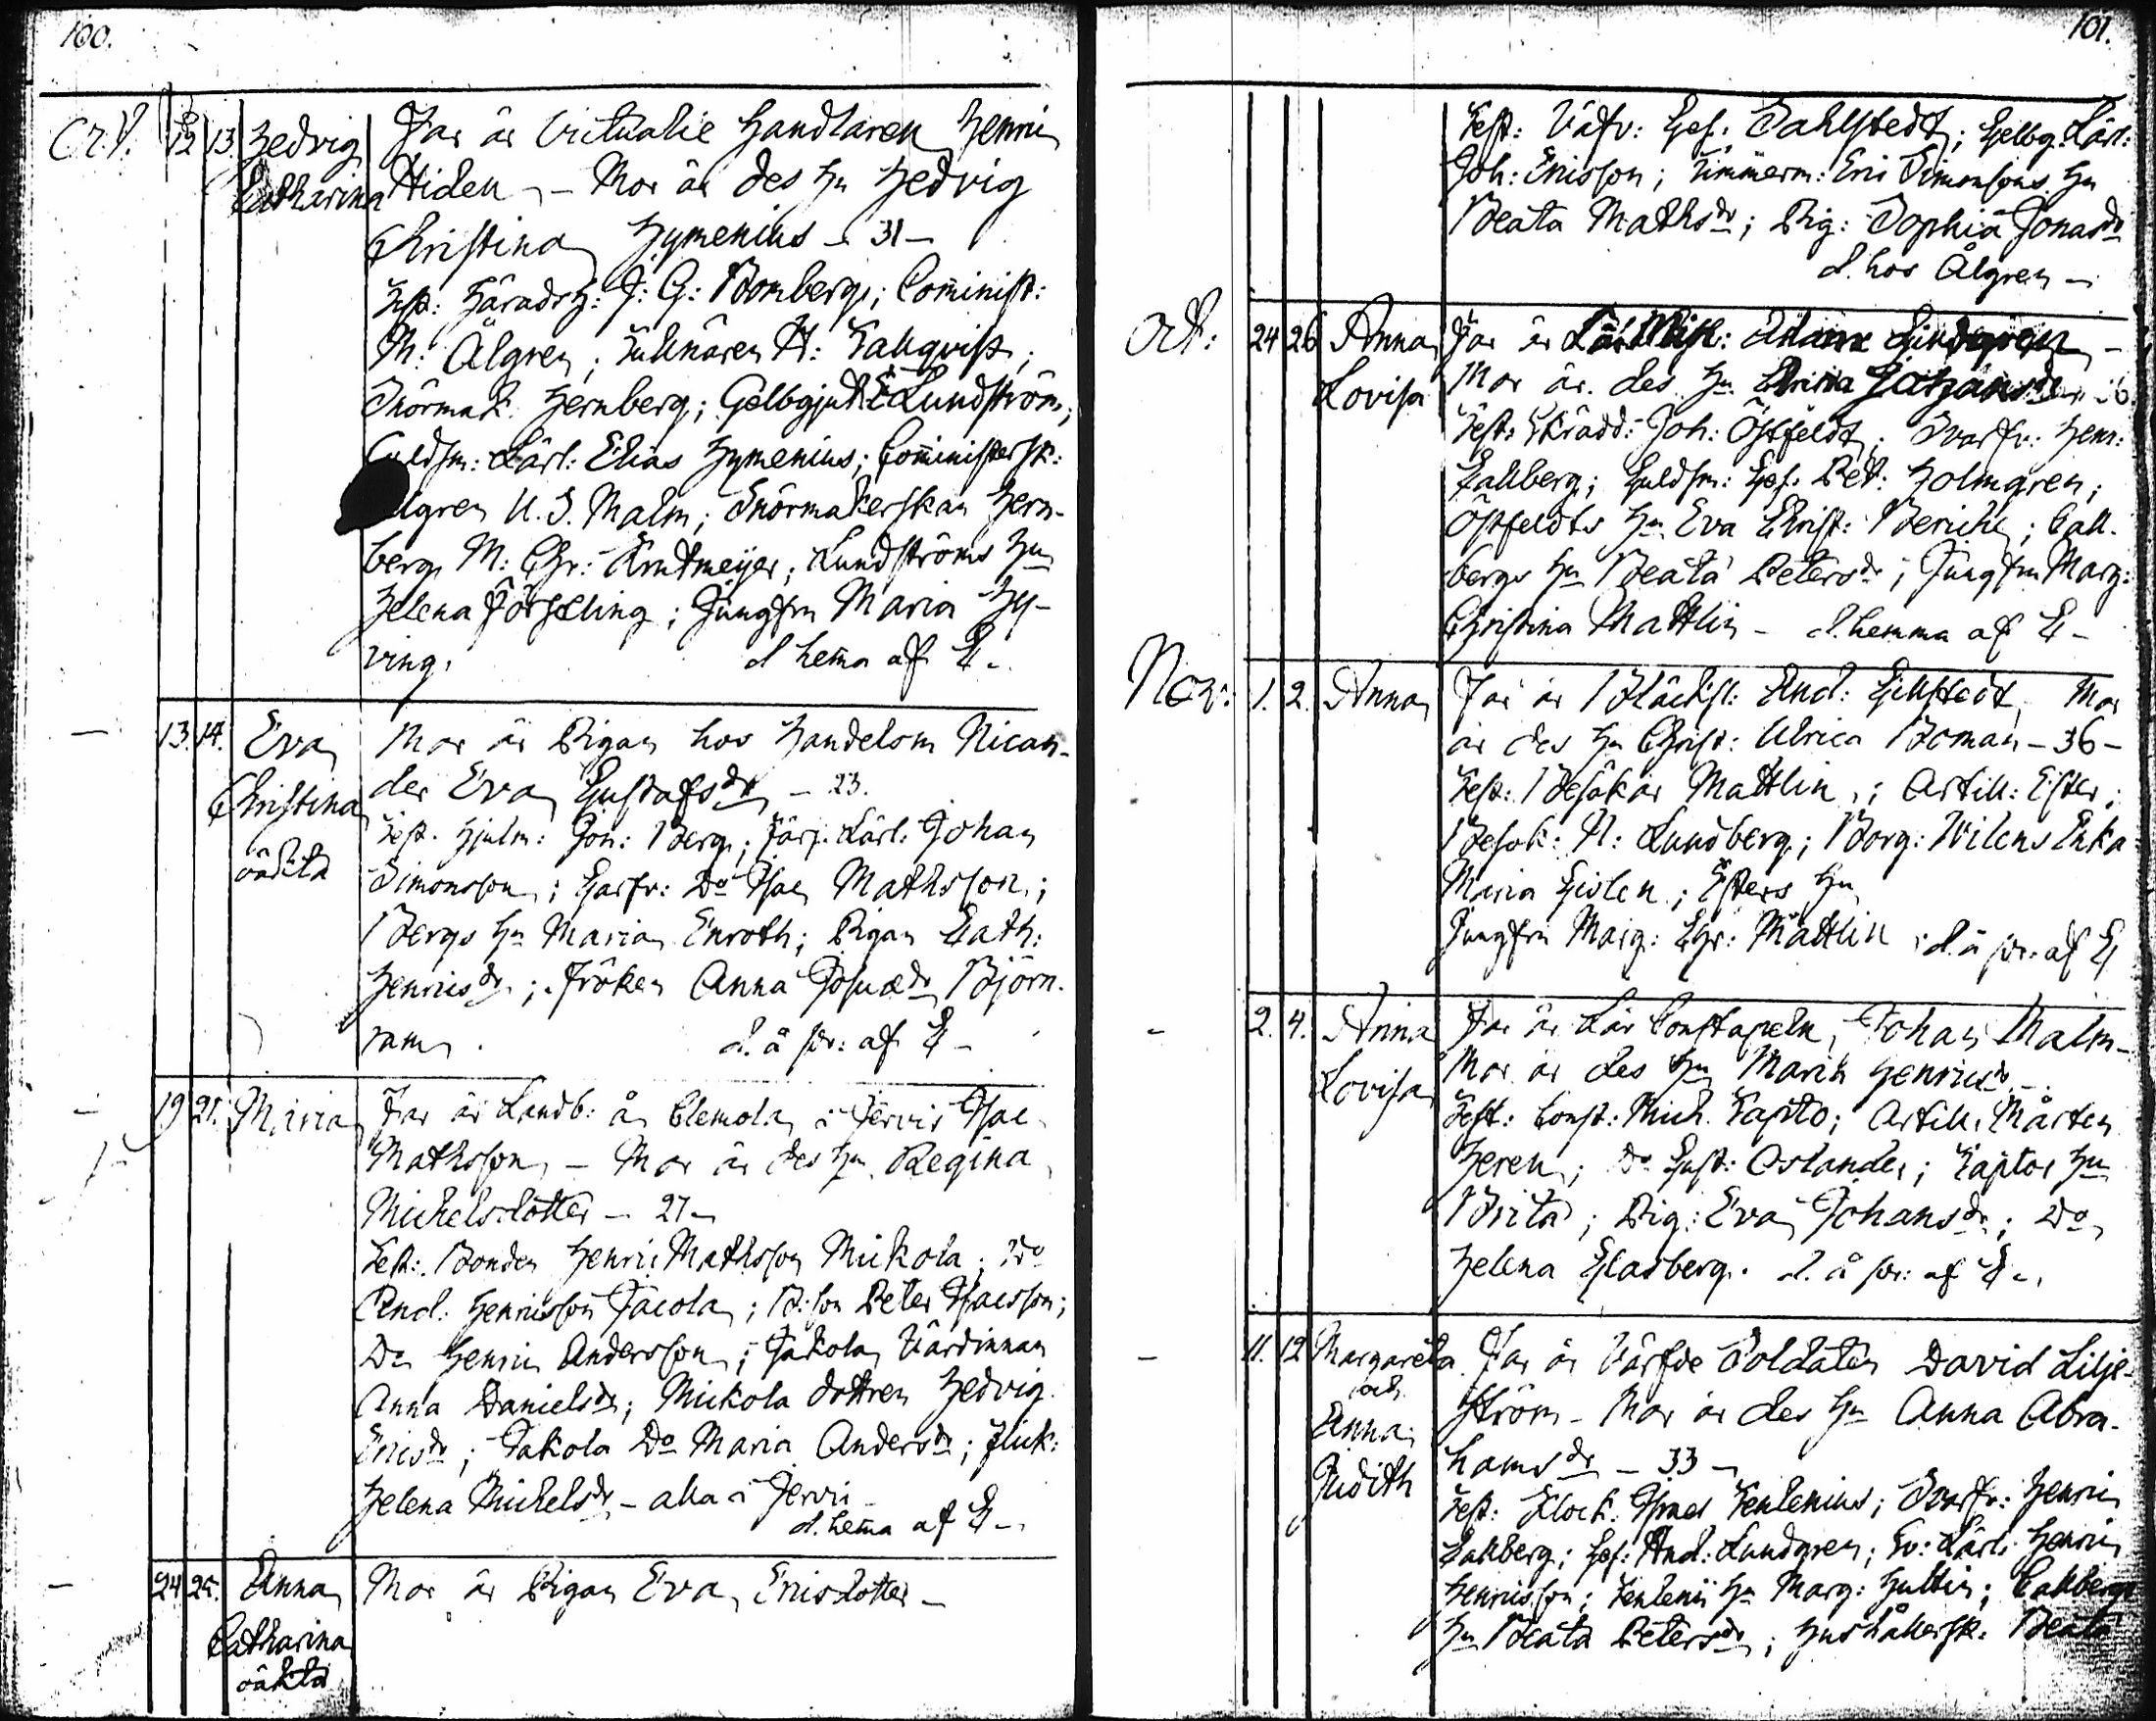 100.
Oct. 12 13. Hedvig Far är Victualie Handlaren Henric
Catharina Hiden, - Mor är des Hu Hedvig
Christina Hymenius - 31 -
Test: Häradsh: J: G: Bomberg; Com̄inist:
M: Ålgren; Tullnären A: Kallqvist;
Snörmak. Hernberg; Gelbgjut: E Lundström;
Guldsm: Lärl: Elias Hymenius; Com̄inistersk:
lgren U. S. Malm; Snörmakerskan Hern-
berg M: Chr: Arntmeijer; Lundströms Hu
Helena Förseling; Jungfru Maria Hy-
ving. d hem̄a af E.
- 13. 14. Eva Mor är Pigan hos Handelsm Nican-
der Eva Gustafsdr - 23.
Christina Test. Hjulm: Jon: Berg; Färg. Lärl: Johan
oäkta Simonsson; Garfv: Do Isac Mathsson;
Bergs Hu Maria Enroth; Pigan Cath:
Henricsdr; Fröken Anna Josuædr Björn-
ram. d. å sv: af E -
- 19 21. Maria Far är Landb: å Clemola i Jervis Isac
Mathsson, - Mor är des Hu Regina
Michelsdotter - 27 -
Test: Bonden Henric Mathsson Mickola; Do
And: Henricsson Jacola; B: son Peter Isacsson;
Do Henric Andersson; Jakola Värdinnan
Anna Danielsdr; Mickola dottren Hedvig
Ericsdr; Jakola Do Maria Andersdr; Flick:
Helena Michelsdr - alla i Jervis
d. hem̄a af E -
- 24 25. Anna Mor är Pigan Eva Ericsdotter -
Catharina
oäkta
101.
Test: Väfv: Ges: Dahlstedt; Gelbg. Lärl:
Joh: Ericsson; Timmerm: Eric Simonsons Hu
Beata Mathsdr; Pig: Sophia Jonasdr
d. hos Ålgren -
Oct: 24 26 Anna Far är Adam Lindgren -
Lovisa Mor är des Hu 36
Test: Skrädd: Joh: Östfeldt; Svarfv: Henr:
Callberg; Guldsm: Ges: Pet: Holmgren;
Östfeldts Hu Eva Christ: Berichs; Call-
bergs Hu Beata Petersdr; Jungfru Marg:
Christina Mattlin - d. hemma af E -
Nov: 1. 2. Anna Far är Bläcksl: And: Gillstedt, Mor
är des Hu Christ: Ulrica Boman - 36 -
Test: Besökar Mattlin; Artill: Ester;
Besök: N: Lundberg; Borg: Wilens Enka
Maria Gislen; Esters Hu
Jungfru Marg: Chr: Mattlin d. å sv: af E
- 2. 4. Anna Far är Lär Constapeln, Johan Malm -
Lovisa Mor är des Hu Maria Henricsdr -
Test: Const: Mich. Tapto; Artill. Mårten
Heren; Do Gust: Oslander; Taptos Hu
Brita; Pig: Eva Johansdr; Do
Helena Glasberg. d. å sv: af E -
- 11. 12 Margareta Far är Värfde Soldaten David Lilje-
och ström - Mor är des Hu Anna Abra-
Anna hamsdr - 33 -
Judith Test: Klock: Israel Tenlenius; Svarfv: Henric
Callberg; Ges: And: Lundgren; Sv: Lärl: Henric
Henricsson; Tenlenii Hu Marg: Hultin; Callbergs
Hu Beata Petersdr; Hushållersk: Beata